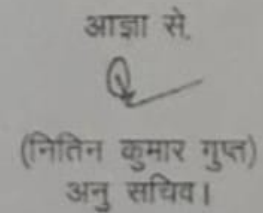 आज्ञा से,
(नितिन कुमार गुप्त)
अनु सचिव।